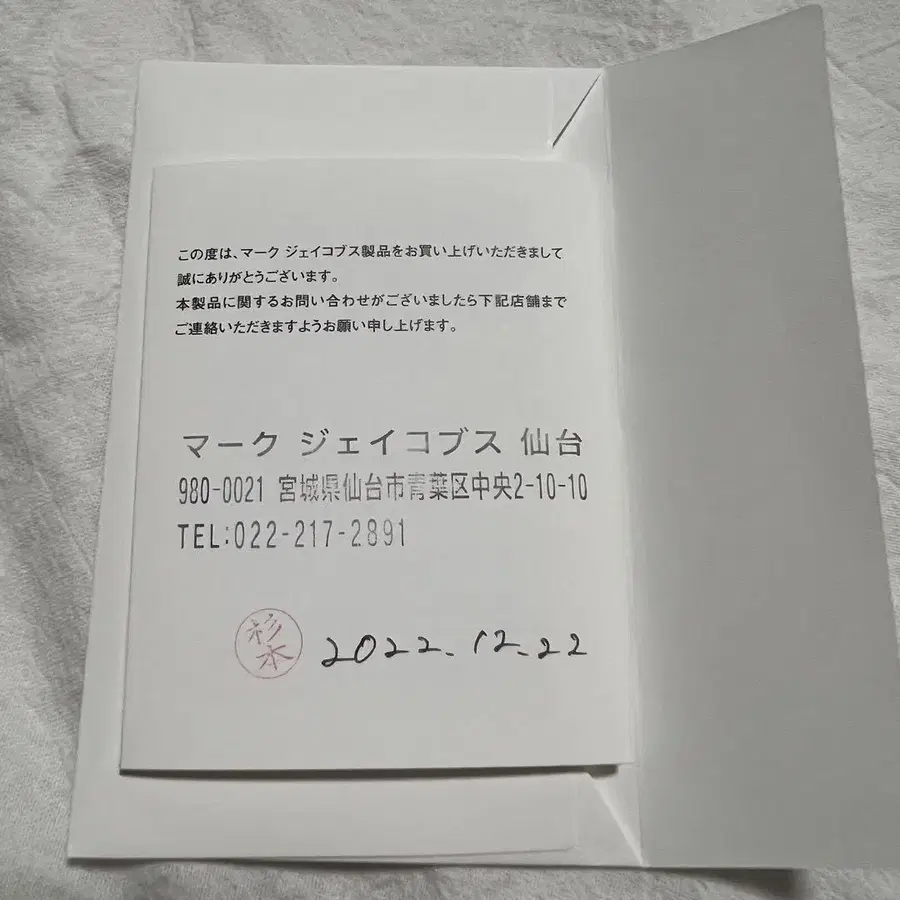 この度は、マーク ジェイコブス製品をお買い上げいただきまして
誠にありがとうございます。
本製品に関するお問い合わせがございましたら下記店舗まで
ご連絡いただきますようお願い申し上げます。
マーク ジェイコブス 仙台
980-0021 宮城県仙台市青葉区中央2-10-10
TEL:022-217-2891
杉本 2022.12.22